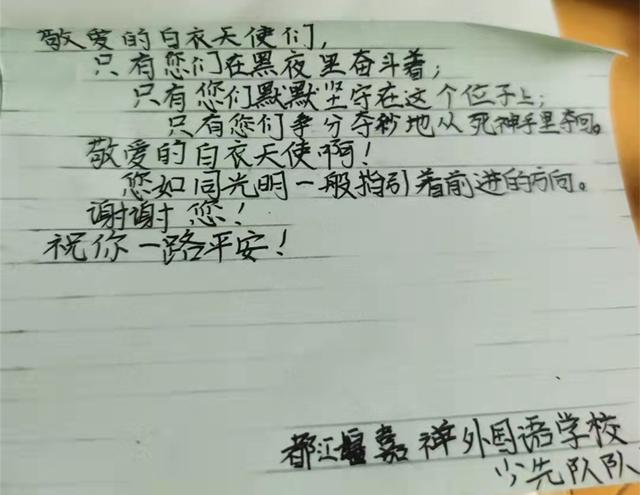 敬爱的白衣天使们,
只有您们在黑夜里奋斗着;
只有您们默默坚守在这个位子上;
只有您们争分夺秒地从死神手里夺回。
敬爱的白衣天使啊!
您如同光明一般指引着前进的方向。
谢谢您!
祝你一路平安!
都江堰嘉祥外国语学校
少先队队